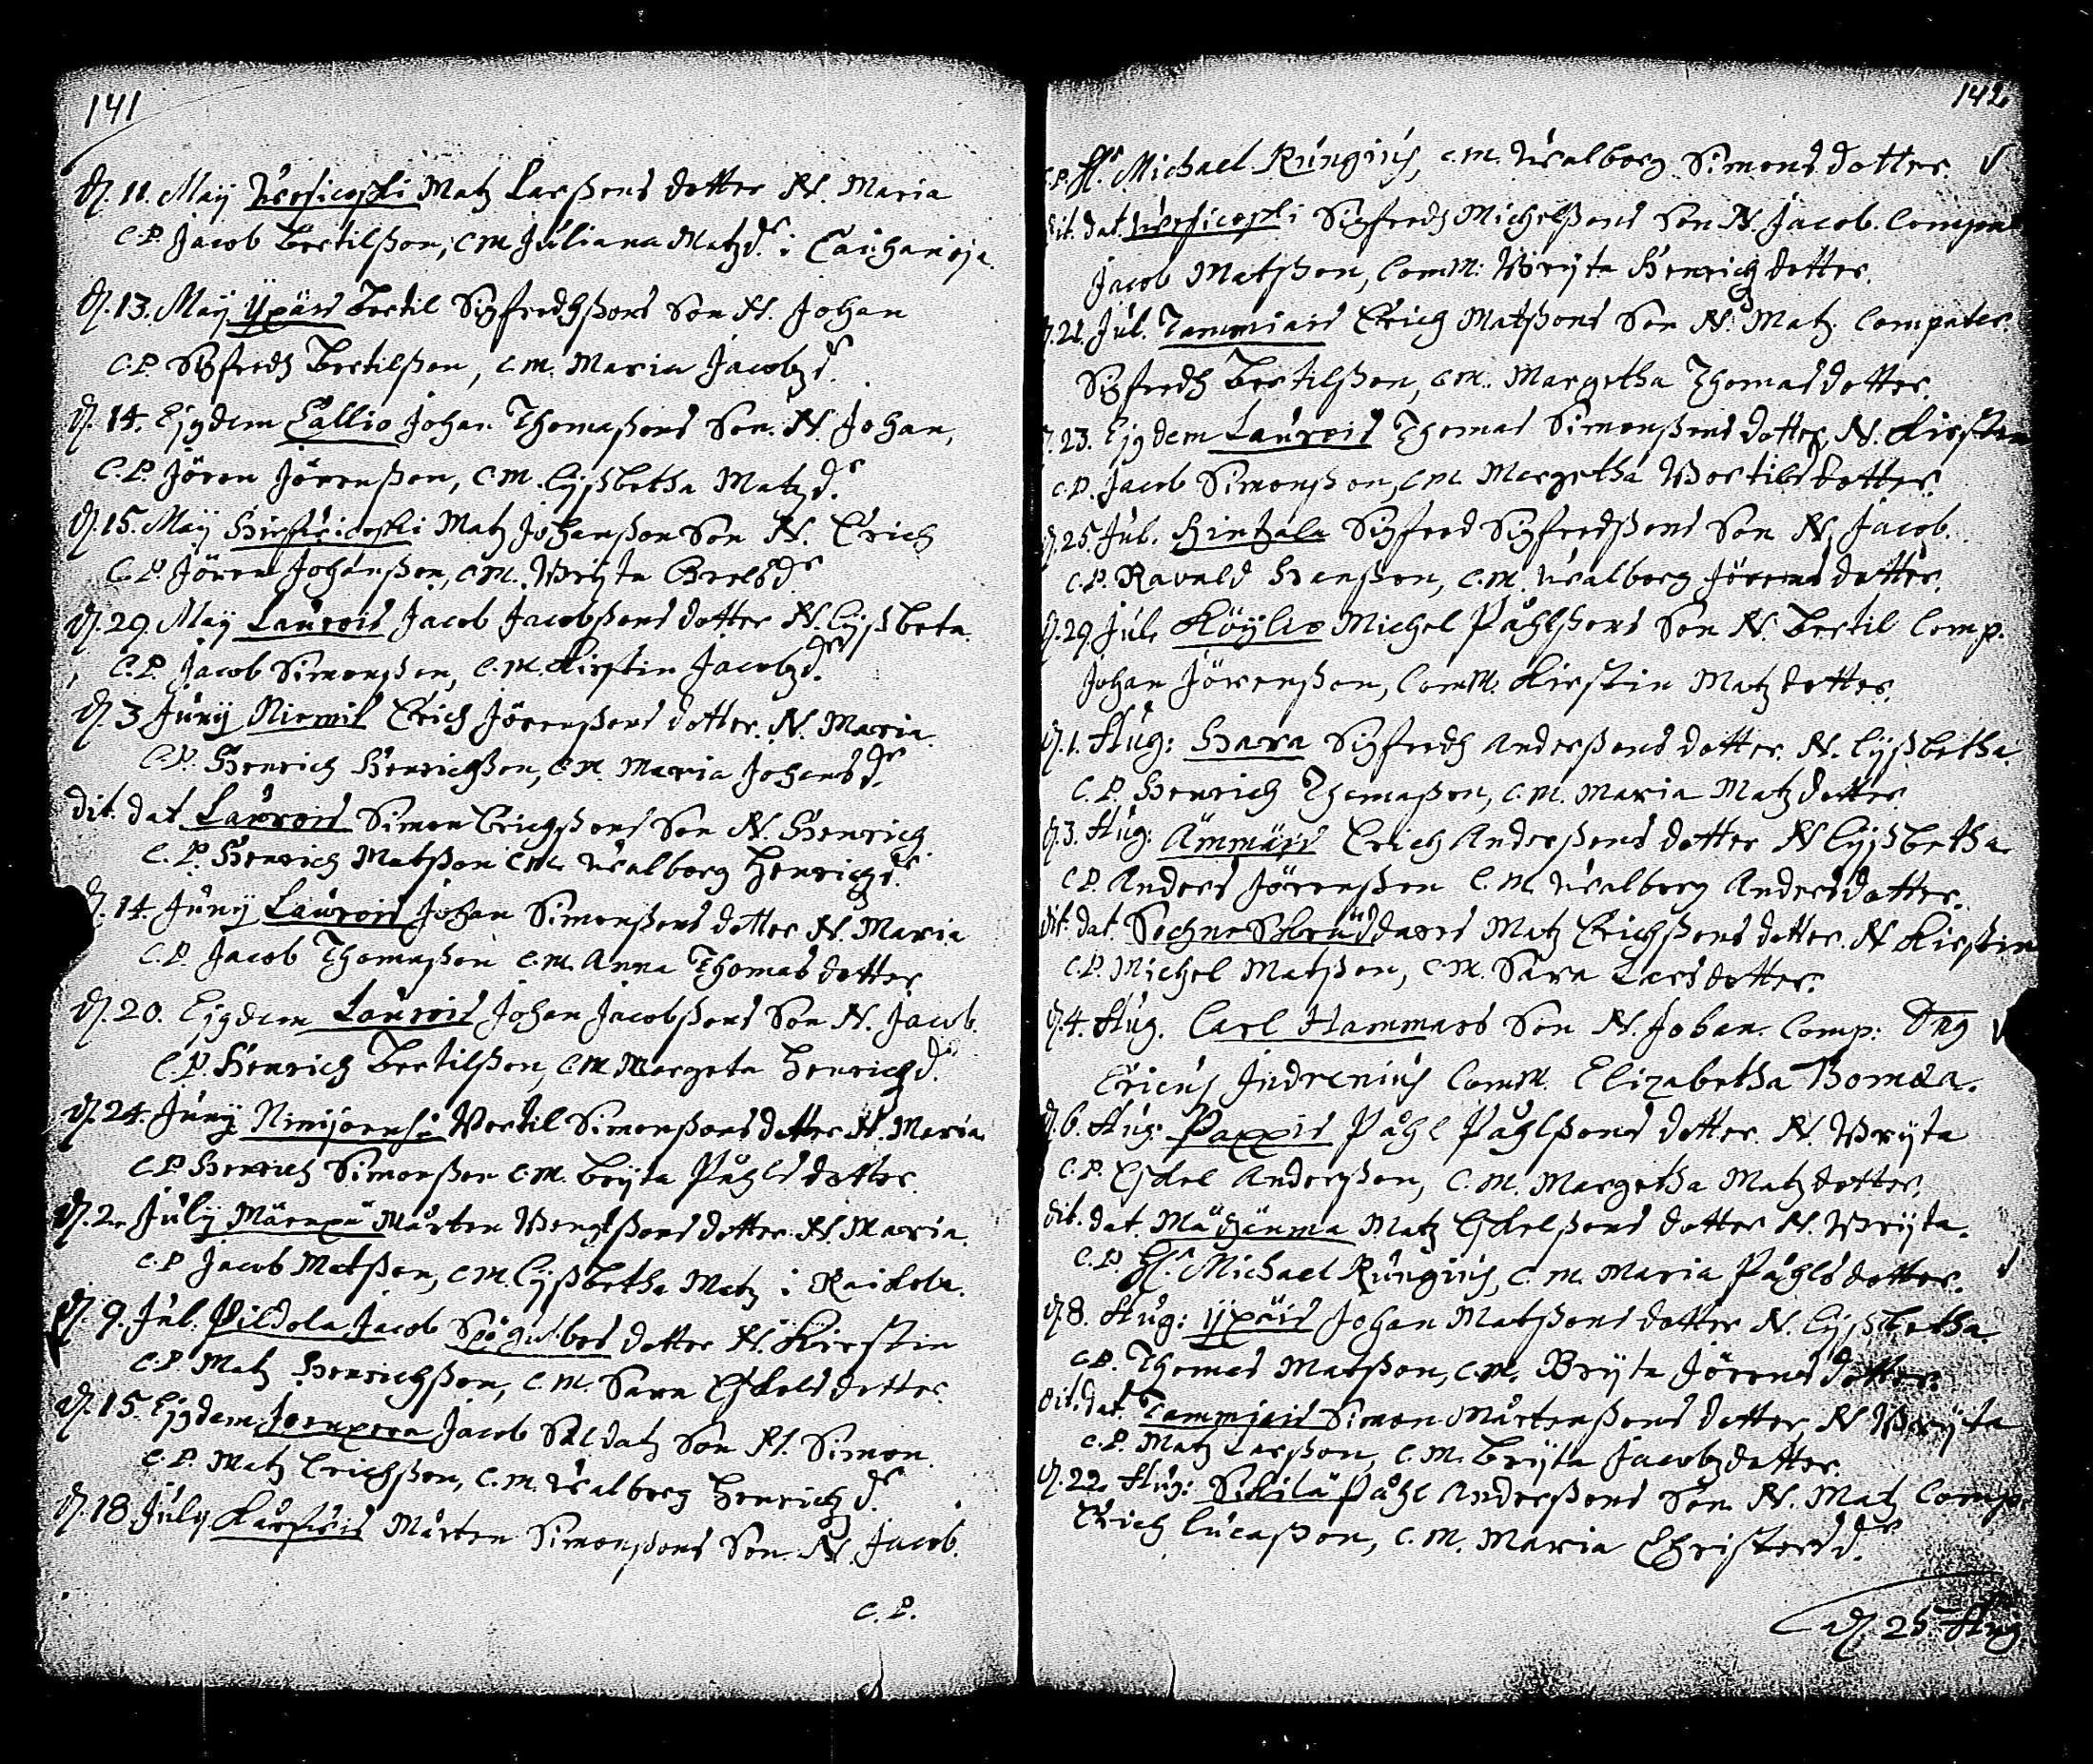 141
d. 11. Maÿ Versicoski Matz Larßons dotter N. Maria
C.P. Jacob Bertilßon, C.M. Juliana Matzdr. i
d. 13. Maÿ Ÿpäis Bertil Sigfredhßons Son N. Johan
C.P. Sigfredh Bertilßon, C.M. Maria Jacobzdr.
d. 14. Ejusdem Callio Johan Thomaßons Son. N. Johan,
C.P. Jören Jörenßon, C.M. Lÿsbetha Matzdr.
d. 15. Maÿ Matz Johanßon Son N. Erich
C.P. Jören Johanßon, C.M. Brÿta
d. 29. Maÿ Laurois Jacob Jacobßons dotter N. Lÿsbeta.
C.P. Jacob Simonßon, C.M. Kirstin Jacobzdr.
d. 3 Junÿ Niemis Erich Jörenßons dotter. N. Maria.
C.P. Henrich Henrichßon, C.M. Maria Johansdr.
dit. dat Laurois Simon Erichßons Son N. Henrich.
C.P. Henrich Matßon C.M. Walborg Henrichzdr.
d. 14. Junÿ Laurois Johan Simonßons dotter N. Maria
C.P. Jacob Thomaßon C.M. Anna Thomas dotter
d. 20. Ejusdem Laurois Johan Jacobßons Son N. Jacob.
C.P. Henrich Bertilßon, C.M. Margeta Henrichzdr.
d. 24. Junÿ Bertil Simonßons dotter N. Maria.
C.P. Henrich Simonßon C.M. Brÿta Påhls dotter.
d. 2. Julÿ Mårten Bengtßons dotter. N. Maria.
C.P. Jacob Matßon, C.M. Lÿßbetha Matz i Raikola.
d. 9. Jul. Pildola Jacob dotter N. Kirstin
C.P. Matz Henrichßon, C.M. Sara Eskels dotter.
d. 15. Ejusdem Jacob Saldatz Son N. Simon.
C.P. Matz Erichßon, C.M. Walborg Henrichzdr.
d. 18 Julÿ Mårten Simonßons Son. N. Jacob.
C.P.
142
C.P. Hr. Michael Rungius, C.M. Walborg Simons dotter.
dit. dat. Versicoski Sigfredh Michelßons Son N. Jacob. Compat
Jacob Matßon, ComM: Brÿta Henrich dotter.
d. 21. Jul. Tammiais Erich Matßons Son N. Matz. Compater.
Sigfredh Bertilßon, C.M. Margetha Thomas dotter.
d. 23. Ejusdem Laurois Thomas Simonßons dotter, N. Kirstin
C.P. Jacob Simonßon, C.M. Margetha Bertils dotter.
d. 25. Jul. Hintzala Sigfred Sigfredßons Son N. Jacob.
C.P. Ravald Hanßon, C.M. Walborg Jörens dotter.
d. 29. Jul. Köÿliö Michel Påhlßons Son N. Bertil Comp.
Johan Jörenßon, ComM. Kirstin Matz dotter.
d. 1. Aug: Hara Sigfredh Anderßons dotter. N. Lÿßbetha.
C.P. Henrich Thomaßon, C.M. Maria Matz dotter
d. 3. Aug: Ämmäis Erich Anderßons dotter N Lÿßbetha.
C.P. Anders Jörenßon C.M. Walborg Anders dotter.
dit. dat. Matz Erichßons dotter. N Kirstin
C.P. Michel Matßon, C.M. Sara Lars dotter.
d. 4. Aug. Carl Hammars Son N. Johan. Comp: Dns
Ericus Indrenius ComM. Elizabetha Bomæa.
d. 6. Aug: Pappis Påhl Påhlßons dotter. N. Brÿta
C.P. Eskel Anderßon, C.M. Margetha Matz dotter.
dit. dat. Mähänmä Matz Eskelßons dotter N. Brÿta.
C.P. Hr. Michael Rungius, C.M. Maria Påhls dotter.
d. 8. Aug: Ÿpäis Johan Matßons dotter N. Lÿßbetha
C.P. Thomas Matßon, C.M. Brÿta Jörens dotter.
dit. dat. Tammiais Simon Mårtenßons dotter, N Brÿta
C.P. Matz Larßon, C.M. Brÿta Jacobz dotter.
d. 22. Aug: Sikilä Påhl Anderßons Son. N. Matz Comp.
Erich Lucaßon, C.M. Maria Christersdr.
d. 25. Aug